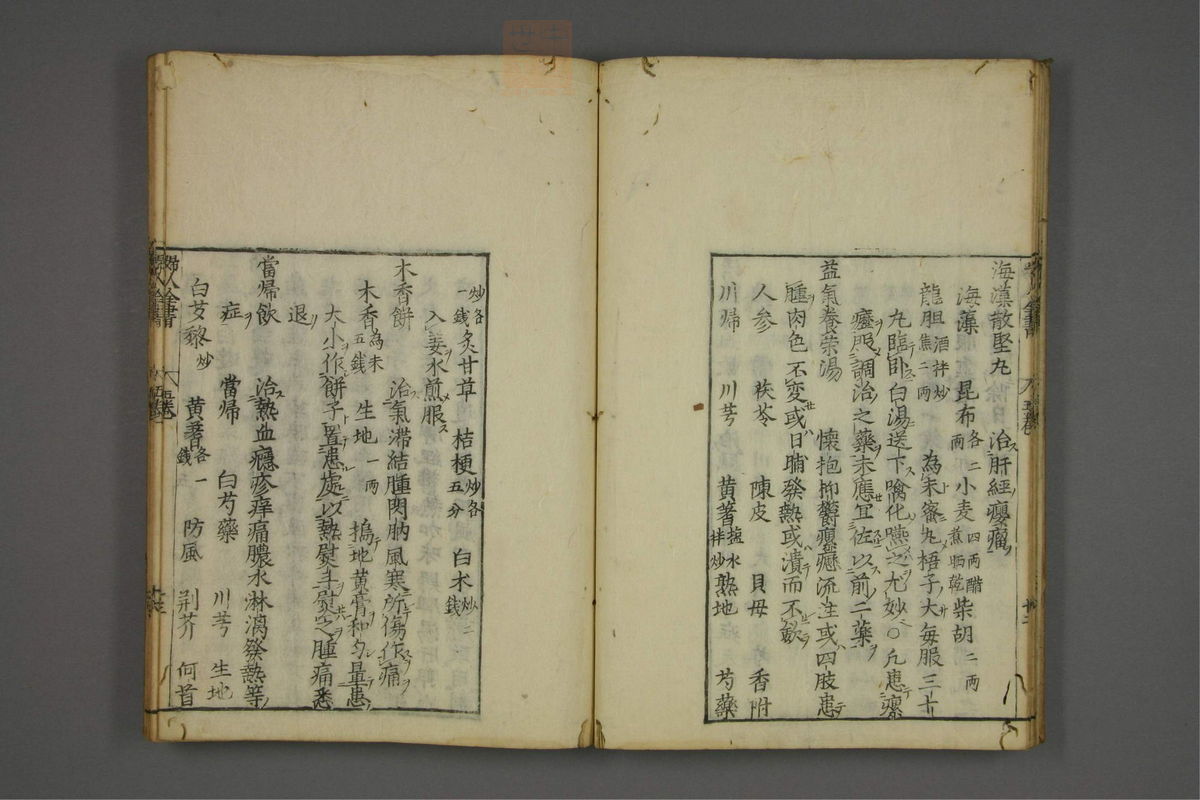 海藻散堅丸 治肝經癭瘤
海藻 昆布各二兩 小麦四兩醋煮晒乾 柴胡二兩
龍胆酒拌炒焦二兩 為末蜜丸梧子大毎服三十
九臨卧白湯送下噙化嚥之尤妙○凡患瘰
癧服調治之藥未應宜佐以前二藥
益氣養荣湯 懷抱抑欝瘰癧流注或四肢患
腫肉色不変或日晡發熱或潰而不斂
人参 茯苓 陳皮 貝母 香附
川帰 川芎 黄蓍塩水拌炒 熟地 芍藥
炒各一錢 炙甘草 桔梗炒各五分 白术炒二錢
入姜水煎服
木香餅 治氣滞結腫閃肭風寒所傷作痛
木香為末五錢 生地一兩 搗地黄膏和匀量患
大小作餅子置患處以熱熨斗熨之腫痛悉
退
當帰飲 治熱血癮疹痒痛膿水淋漓發熱等
症 當帰 白芍藥 川芎 生地
白芆藜炒 黄蓍各一錢 防風 荆芥 何首
婦人全書 五卷